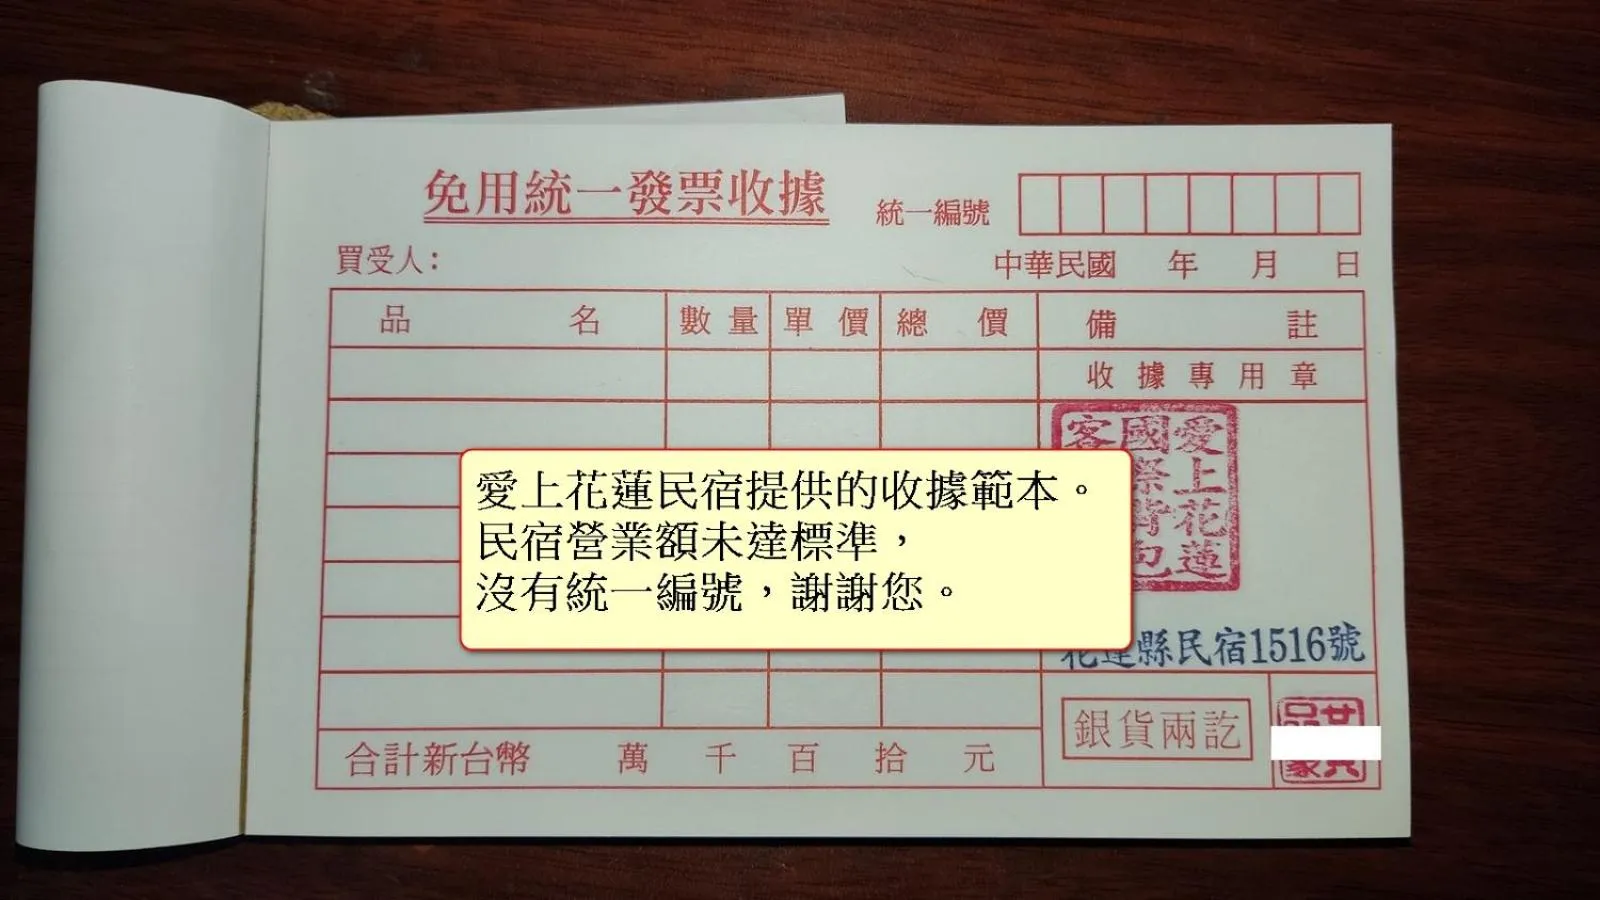 免用統一發票收據
統一編號
買受人：
中華民國 年 月 日
品名 數量 單價 總價 備註
收據專用章
愛上花蓮
國際背包
客
愛上花蓮民宿提供的收據範本。
民宿營業額未達標準，
沒有統一編號，謝謝您。
花蓮縣民宿1516號
銀貨兩訖
合計新台幣 萬 千 百 拾 元